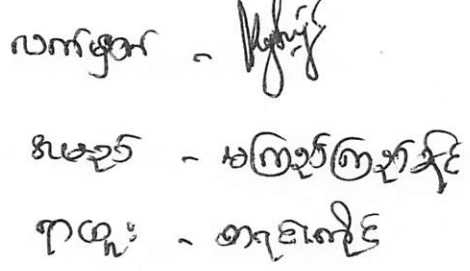 လက်မှတ် -
အမည် - မကြည်ကြည်ခိုင်
ရာထူး - စာရင်းကိုင်